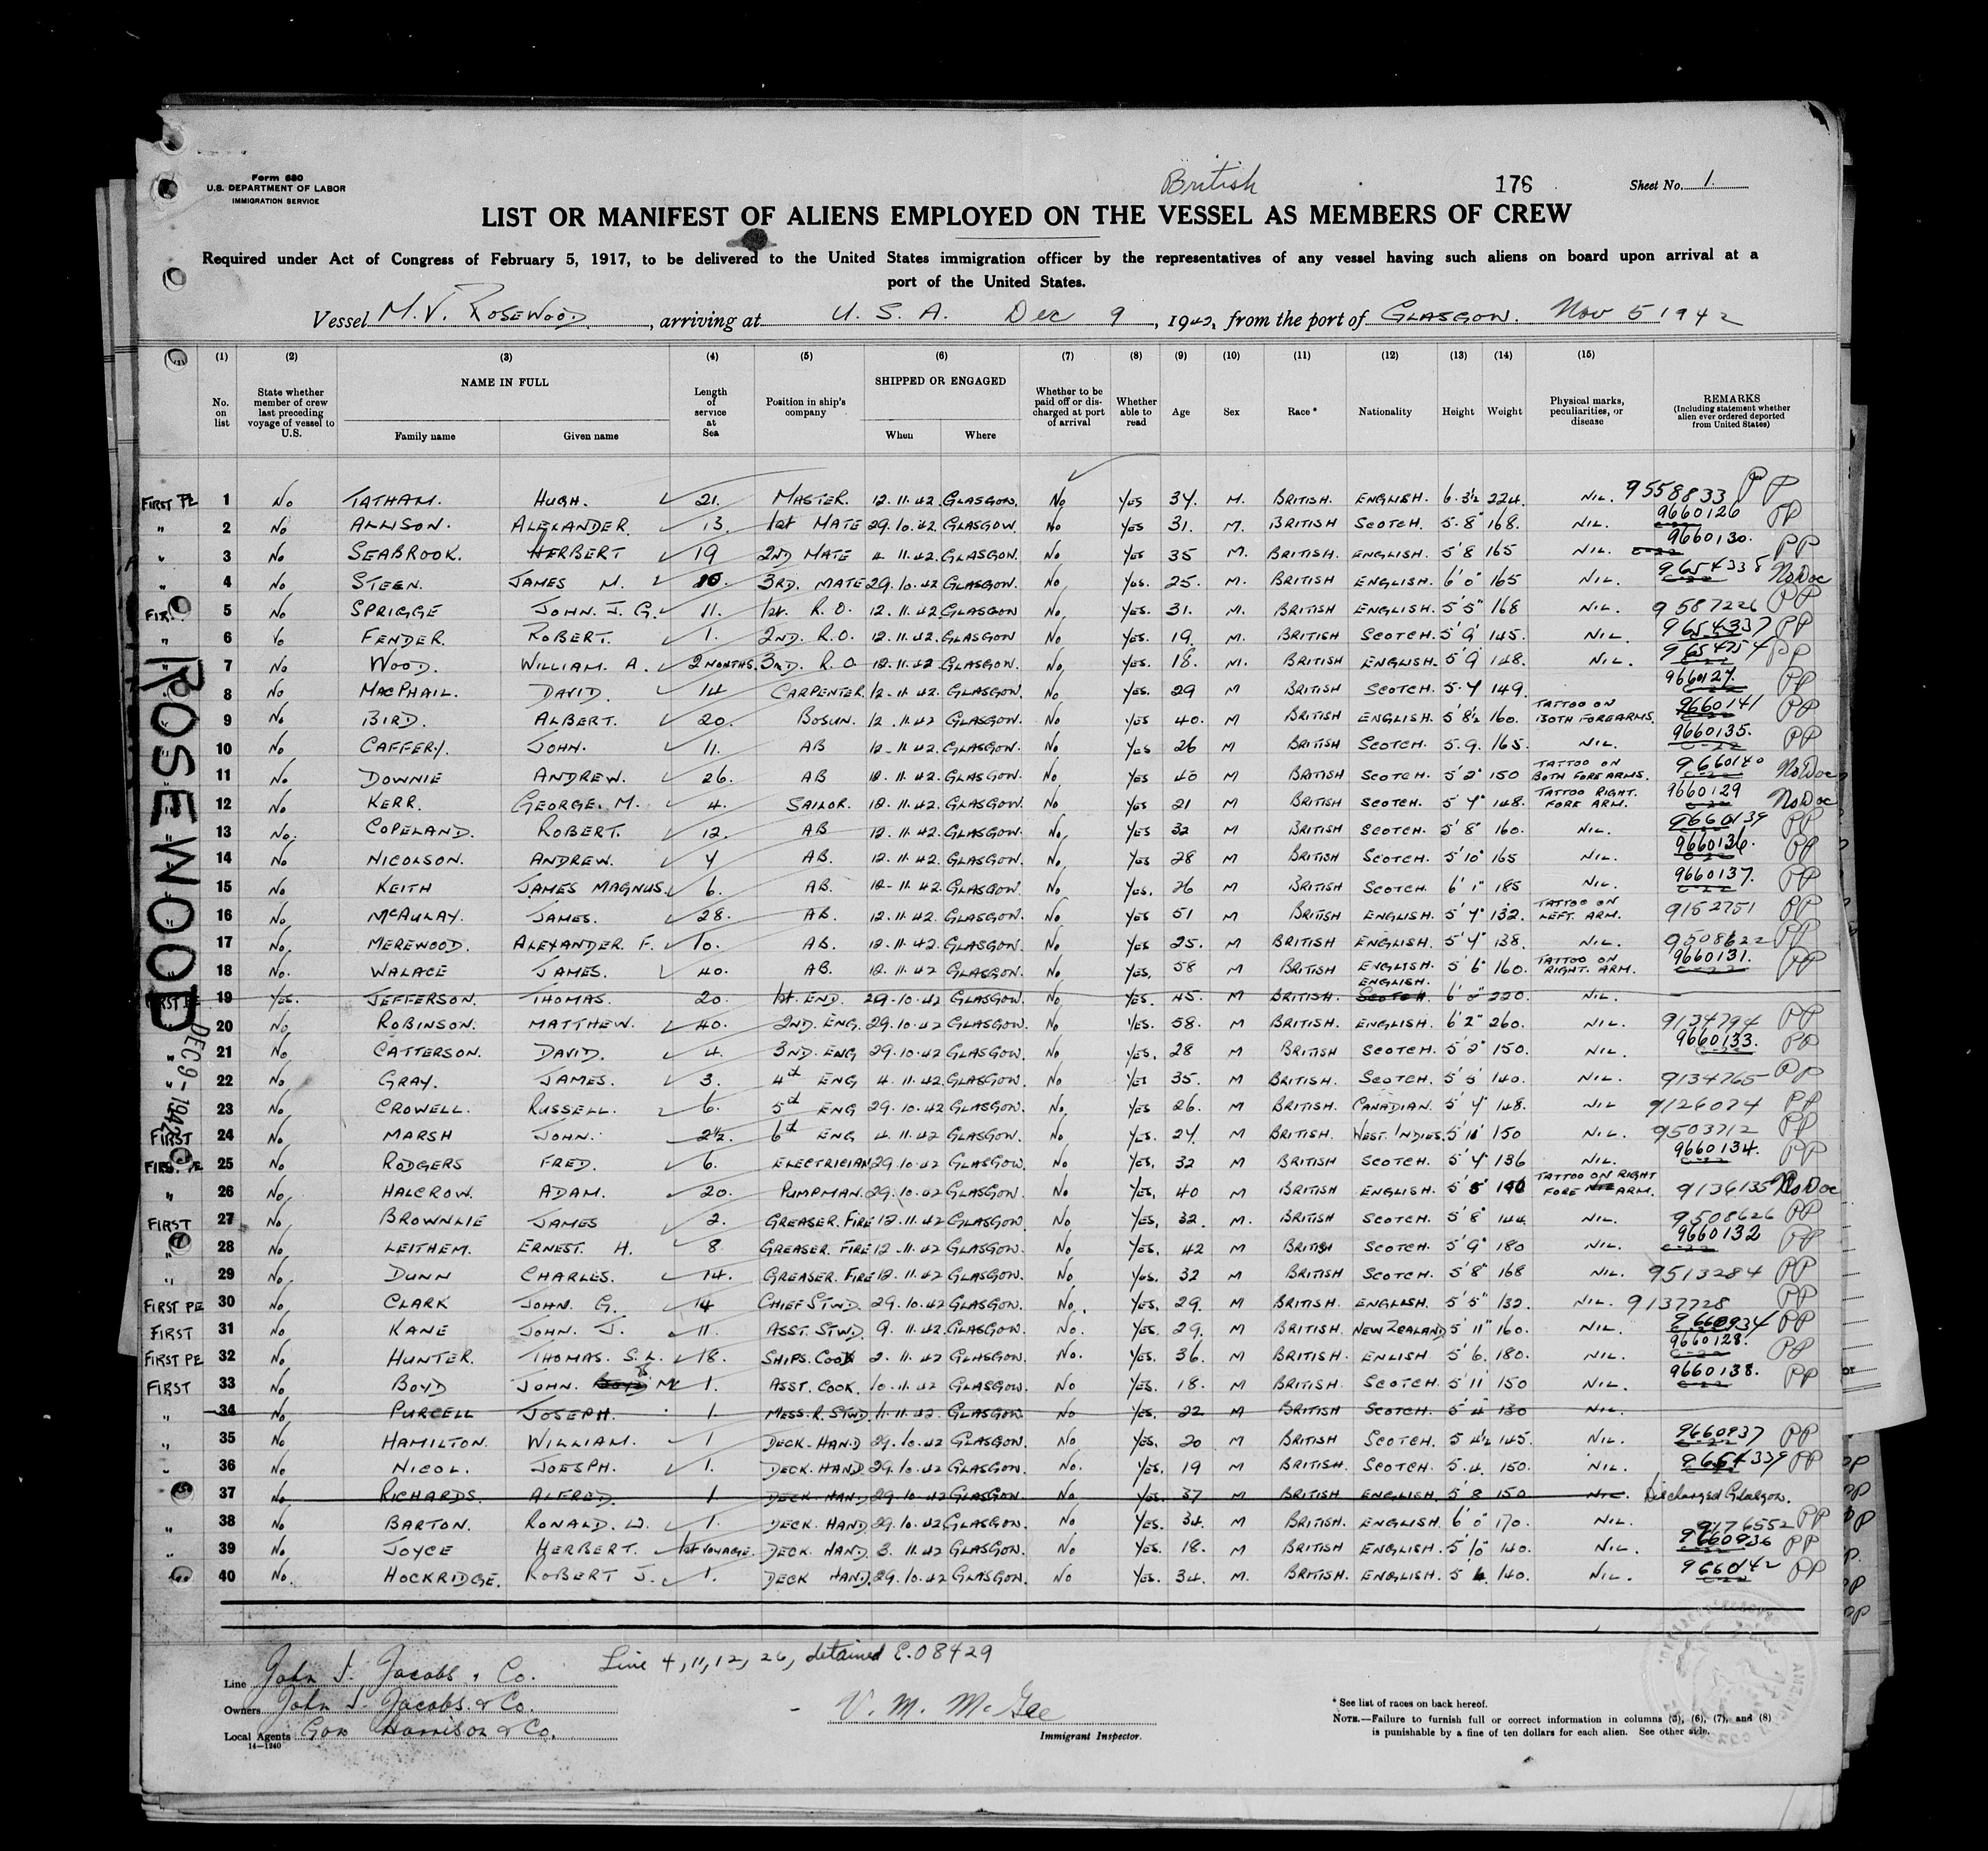 Form 680
U.S. DEPARTMENT OF LABOR
IMMIGRATION SERVICE
British
176
Sheet No. 1.
LIST OR MANIFEST OF ALIENS EMPLOYED ON THE VESSEL AS MEMBERS OF CREW
Required under Act of Congress of February 5, 1917, to be delivered to the United States immigration officer by the representatives of any vessel having such aliens on board upon arrival at a
port of the United States.
Vessel M.V. ROSEWOOD, arriving at U. S. A. Dec 9, 1942, from the port of GLASGOW. Nov 5 1942
(1) (2) (3) (4) (5) (6) (7) (8) (9) (10) (11) (12) (13) (14) (15)
No. on list State whether member of crew last preceding voyage of vessel to U.S. NAME IN FULL Family name Given name Length of service at Sea Position in ship's company SHIPPED OR ENGAGED When Where Whether to be paid off or discharged at port of arrival Whether able to read Age Sex Race * Nationality Height Weight Physical marks, peculiarities, or disease REMARKS (Including statement whether alien ever ordered deported from United States)
FIRST PE 1 No TATHAM. HUGH. 21. MASTER. 12.11.42. GLASGOW. No Yes 34. M. BRITISH. ENGLISH. 6.3½ 224. NIL. 9558833 PP
" 2 No ALLISON. ALEXANDER. 13. 1st MATE 29.10.42. GLASGOW. No Yes 31. M. BRITISH SCOTCH. 5.8" 168. NIL. 9660126 PP
" 3 No SEABROOK. HERBERT 19 2ND MATE 4.11.42. GLASGOW. No Yes 35 M. BRITISH. ENGLISH. 5'8 165 NIL. 9660130. PP
" 4 No STEEN. JAMES M. 10. 3RD. MATE 29.10.42 GLASGOW. No Yes. 25. M. BRITISH ENGLISH. 6'0" 165 NIL. 9654338 No Doc
5 No SPRIGGE JOHN. J. G. 11. 1st. R.O. 12.11.42. GLASGOW No, Yes. 31. M. BRITISH ENGLISH. 5'5" 168 NIL. 9587226 PP
" 6 No FENDER. ROBERT. 1. 2ND. R.O. 12.11.42. GLASGOW No Yes. 19. M. BRITISH SCOTCH. 5'9' 145. NIL. 9654337 PP
7 No WOOD. WILLIAM. A. 2 MONTHS. 3RD. R.O 12.11.42. GLASGOW. No, Yes. 18. M. BRITISH ENGLISH. 5'9 148. NIL. 9654754 PP
8 No MACPHAIL. DAVID. 14 CARPENTER. 12.11.42. GLASGOW. No Yes. 29 M BRITISH SCOTCH. 5.7 149. 9660127. PP
9 No BIRD. ALBERT. 20. BOSUN. 12.11.42 GLASGOW. No Yes 40. M BRITISH ENGLISH. 5'8½ 160. TATTOO ON BOTH FOREARMS. 9660141 PP
10 No CAFFERY. JOHN. 11. AB 12.11.42. GLASGOW. No Yes 26 M BRITISH SCOTCH. 5.9. 165. NIL. 9660135. PP
11 No DOWNIE ANDREW. 26. AB 12.11.42. GLASGOW. No Yes 40 M BRITISH SCOTCH. 5'2" 150 TATTOO ON BOTH FOREARMS. 9660140 No Doc
12 No KERR. GEORGE. M. 4. SAILOR. 12.11.42. GLASGOW. No Yes 21 M BRITISH SCOTCH. 5'7" 148. TATTOO RIGHT. FORE ARM. 9660129 No Doc
13 No. COPELAND. ROBERT. 12. AB 12.11.42. GLASGOW. No, Yes 32 M BRITISH SCOTCH. 5'8" 160. NIL. 9660139 PP
14 No NICOLSON. ANDREW. 7 AB. 12.11.42. GLASGOW. No, Yes 28 M BRITISH SCOTCH. 5'10" 165 NIL. 9660136. PP
15 No KEITH JAMES MAGNUS. 6. AB. 12.11.42. GLASGOW. No Yes. 26 M BRITISH SCOTCH. 6'1" 185 NIL. 9660137. PP
16 No, MCAULAY. JAMES. 28. AB. 12.11.42. GLASGOW. No Yes 51 M BRITISH ENGLISH. 5'7" 132. TATTOO ON LEFT. ARM. 9152751 PP
17 No, MEREWOOD. ALEXANDER F. 10. AB. 12.11.42. GLASGOW. No Yes 25. M BRITISH ENGLISH. 5'7" 138. NIL. 9508622 PP
18 No. WALACE JAMES. 40. AB. 12.11.42 GLASGOW. No Yes, 58 M BRITISH ENGLISH. 5'6" 160. TATTOO ON RIGHT. ARM. 9660131. PP
FIRST PE 19 Yes. JEFFERSON. THOMAS. 20. 1st. END. 29.10.42 GLASGOW. No Yes. 45. M BRITISH. ENGLISH. SCOTCH. 6'0" 220. NIL.
20 No, ROBINSON. MATTHEW. 40. 2ND. ENG. 29.10.42 GLASGOW. No Yes. 58. M BRITISH. ENGLISH. 6'2" 260. NIL. 9134794 PP
" 21 No CATTERSON. DAVID. 4. 3ND. ENG 29.10.42 GLASGOW. No Yes. 28 M BRITISH SCOTCH. 5'2" 150. NIL. 9660133. PP
" 22 No, GRAY. JAMES. 3. 4th ENG 4.11.42. GLASGOW. No Yes 35. M BRITISH. SCOTCH. 5'5' 140. NIL. 9134765 PP
23 No, CROWELL. RUSSELL. 6. 5th ENG 29.10.42. GLASGOW. No, Yes 26. M BRITISH. CANADIAN. 5'7' 148. NIL 9126074 PP
FIRST 24 No, MARSH JOHN. 2½. 6th ENG 4.11.42 GLASGOW. No, Yes. 24. M BRITISH. WEST. INDIES. 5'10' 150 NIL. 9503712 PP
FIRST PE 25 No RODGERS FRED. 6. ELECTRICIAN 29.10.42 GLASGOW. No Yes, 32 M BRITISH SCOTCH. 5'7" 136 NIL. 9660134. PP
" 26 No, HALCROW. ADAM. 20. PUMPMAN. 29.10.42 GLASGOW. No Yes, 40 M BRITISH ENGLISH. 5'8" 190 TATTOO ON RIGHT FORE ARM. 9136135 No Doc
FIRST 27 No, BROWNLIE JAMES 2. GREASER. FIRE 12.11.42 GLASGOW. No Yes, 32. M. BRITISH SCOTCH. 5'8" 144. NIL. 9508626 PP
28 No, LEITHEM. ERNEST. H. 8. GREASER. FIRE 12.11.42 GLASGOW. No Yes. 42 M BRITISH SCOTCH. 5'9" 180 NIL. 9660132 PP
" 29 No, DUNN CHARLES. 14. GREASER. FIRE 12.11.42 GLASGOW. No Yes. 32 M BRITISH SCOTCH. 5'8" 168 NIL. 9513284 PP
FIRST PE 30 No, CLARK JOHN. G. 14 CHIEF STWD. 29.10.42 GLASGOW. No. Yes. 29. M BRITISH. ENGLISH. 5'5" 132. NIL. 9137728 PP
FIRST 31 No, KANE JOHN. J. 11. ASST. STWD. 9.11.42. GLASGOW. No. Yes. 29. M BRITISH. NEW ZEALAND 5'11" 160. NIL. 9660934 PP
FIRST PE 32 No, HUNTER. THOMAS. S.L. 18. SHIPS. COOK 2.11.42 GLASGOW. No. Yes. 36. M BRITISH. ENLISH 5'6. 180. NIL. 9660128. PP
FIRST 33 No, BOYD JOHN. Mc 1. ASST. COOK. 10.11.42 GLASGOW. No Yes. 18. M BRITISH. SCOTCH. 5'11' 150 NIL. 9660138. PP
" 34 No, PURCELL JOSEPH. 1. MESS. R. STWD. 11.11.42. GLASGOW. No Yes. 22 M BRITISH SCOTCH. 5'4" 130 NIL.
" 35 No, HAMILTON. WILLIAM. 1 DECK-HAND 29.10.42 GLASGOW. No Yes. 20 M BRITISH. SCOTCH. 5 4½ 145. NIL. 9660937 PP
36 No NICOL. JOESPH. 1. DECK. HAND 29.10.42 GLASGOW. No. Yes. 19 M BRITISH. SCOTCH. 5.4. 150. NIL. 9654339 PP
37 No, RICHARDS. ALFRED. 1 DECK HAND 29.10.42 GLASGOW. No Yes. 37 M BRITISH ENGLISH. 5'8 150 NIL. Discharged Glasgow.
" 38 No BARTON. RONALD. W. 1. DECK. HAND. 29.10.42 GLASGOW. No Yes. 34. M BRITISH. ENGLISH. 6'0" 170. NIL. 9176552 PP
" 39 No JOYCE HERBERT. 1st VOYAGE. DECK. HAND. 3.11.42 GLASGOW. No Yes. 18. M BRITISH ENGLISH. 5'10" 140. NIL. 9660936 PP
40 No. HOCKRIDGE. ROBERT J. 1. DECK HAND. 29.10.42 GLASGOW. No Yes. 34. M. BRITISH. ENGLISH. 5 6. 140. NIL. 9660142 PP
ROSEWOOD
DEC 9-1942
Line 4, 11, 12, 26, detained E.08429
Line John I. Jacobs & Co.
Owners John I. Jacobs & Co.
Local Agents Harrison & Co.
14—1240
V. M. McGee
Immigrant Inspector.
* See list of races on back hereof.
NOTE.—Failure to furnish full or correct information in columns (3), (6), (7), and (8)
is punishable by a fine of ten dollars for each alien. See other side.